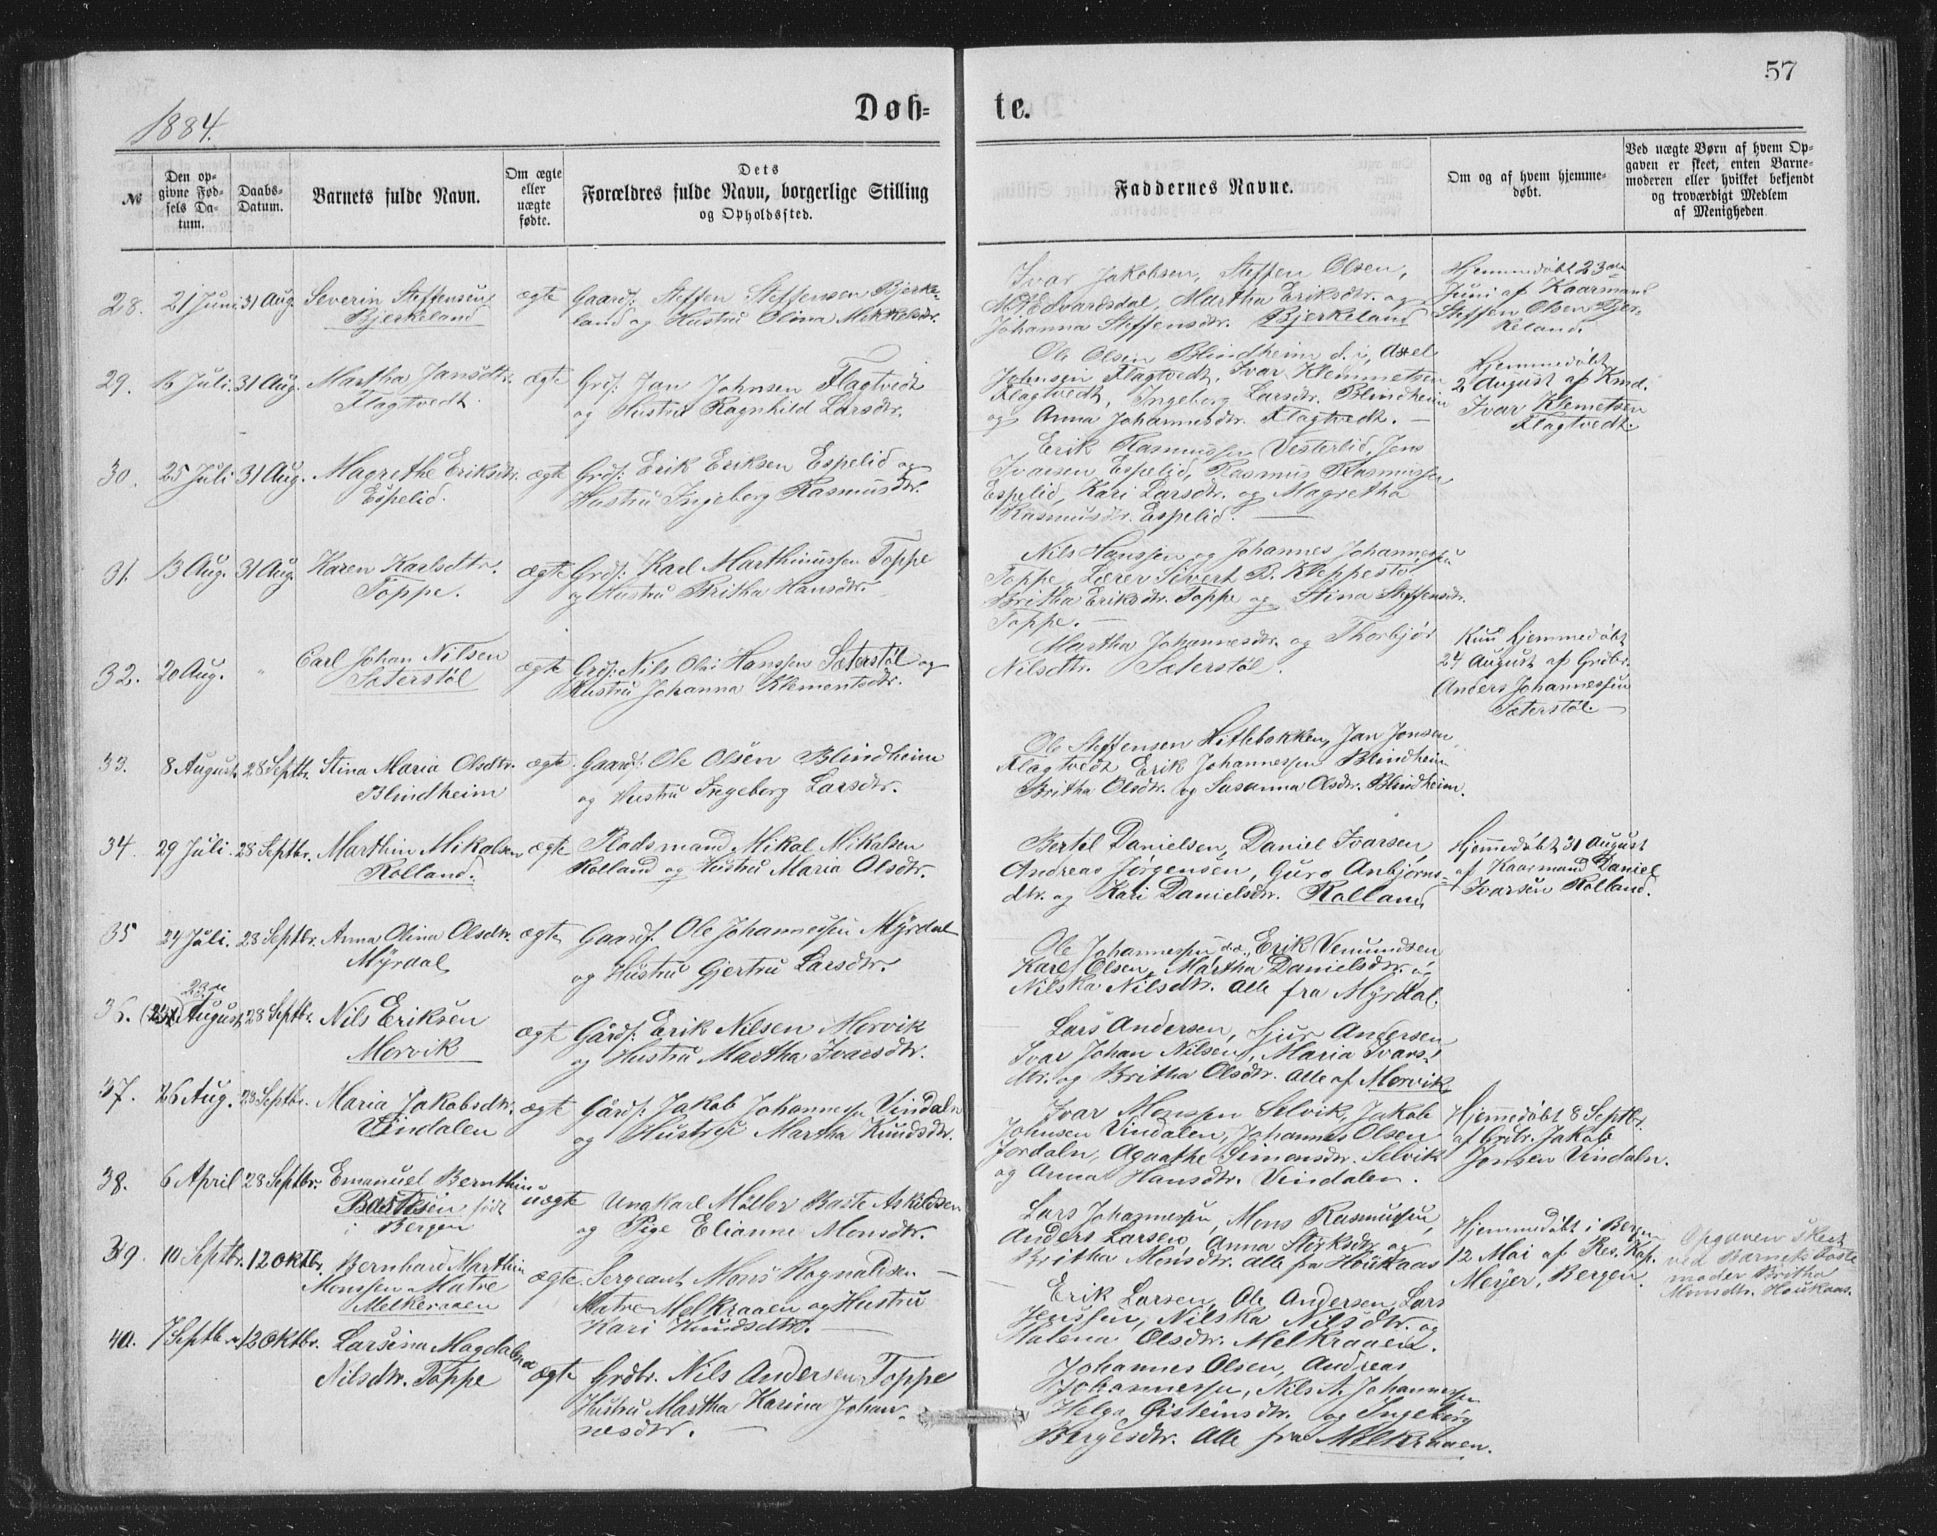 57
1884.
Døb-
te.
№
Den op-
givne Fød-
sels Da-
tum.
Daabs-
Datum.
Barnets fulde Navn.
Om ægte
eller
uægte
fødte.
Dets
Forældres fulde Navn, borgerlige Stilling
og Opholdssted.
Faddernes Navne.
Om og af hvem hjemme-
døbt.
Ved uægte Børn af hvem Op-
gaven er skeet, enten Barne-
moderen eller hvilket bekjendt
og troværdigt Medlem
af Menigheden
28. 21 Juni 31 Aug. Severin Steffensen
Bjerkeland
ægte
Gaardf. Steffen Steffensen Bjerke-
land og Hustru Olina Mikkelsdtr.
Ivar Jakobsen, Steffen Olsen,
Edvardsdal, Martha Eriksdtr. og
Johanna Steffensdtr. Bjerkeland
Hjemmedøbt 23de
Juni af Kaarmand
Steffen Olsen Bjer-
keland.
29. 16 Juli. 31 Aug. Martha Jansdtr.
Flagtvedt.
ægte
Grdf. Jan Johnsen Flagtvedt
og Hustru Ragnhild Larsdtr.
Ole Olsen Blindheim d. i, Axel
Johnsen Flagtvedt, Ivar Klemmetsen
Flagtvedt, Ingeborg Larsdtr. Blindheim
og Anna Johannesdtr. Flagtvedt.
Hjemmedøbt
2 August af Kmd.
Ivar Klemetsen
Flagtvedt.
30. 25 Juli 31 Aug. Magrethe Eriksdtr.
Espelid.
ægte
Grdf. Erik Eriksen Espelid og
Hustru Ingeborg Rasmusdtr.
Erik Rasmussen Vesterlid, Jens
Ivarsen Espelid, Rasmus Rasmussen
Espelid, Kari Larsdtr. og Magretha
Rasmusdtr. Espelid.
31. 13 Aug. 31 Aug. Karen Karlsdtr.
Toppe.
ægte
Grdf. Karl Marthinussen Toppe
og Hustru Britha Hansdtr.
Nils Hanssen og Johannes Johannessen
Toppe, Lærer Sivert B. Kleppestø
Britha Eriksdtr. Toppe og Stina Steffensdtr.
Toppe.
32. 20 Aug. " Carl Johan Nilsen
Sæterstøl
ægte
Grdf. Nils Olai Hanssen Sæterstøl og
Hustru Johanna Klementsdtr.
Martha Johannesdtr. og Thorbjør
Nilsdtr. Sæterstøl.
Kun hjemmedøbt
24 August af Grdbr.
Anders Johannessen
Sæterstøl.
33. 8 August 28 Septbr. Stina Maria Olsdtr.
Blindheim
ægte
Gaardf. Ole Olsen Blindheim
og Hustru Ingeborg Larsdtr.
Ole Steffensen Hitlebakken, Jan Jonsen
Flagtvedt Erik Johannessen Blindheim
Britha Olsdtr. og Susanna Olsdtr. Blindheim.
34. 29 Juli. 28 Septbr. Marthin Mikalsen
Rolland.
ægte
Pladsmand Mikal Mikalsen
Rolland og Hustru Maria Olsdtr.
Bertel Danielsen, Daniel Ivarsen,
Andreas Jørgensen, Guro Anbjørns-
dtr. og Kari Danielsdtr. Rolland
Hjemmedøbt 31 August
af Kaarmand Daniel
Ivarsen Rolland.
35 24 Juli. 28 Septbr. Anna Olina Olsdtr.
Myrdal
ægte
Gaardf. Ole Johannessen Myrdal
og Hustru Gjertru Larsdtr.
Ole Johannessen d.æ., Erik Vemundsen
Karl Olsen, Martha Danielsdtr. og
Nilska Nilsdtr. alle fra Myrdal.
23de
36. August 28 Septbr. Nils Eriksen
Morvik
ægte
Gårdf. Erik Nilsen Morvik
og Hustru Martha Ivarsdtr.
Lars Andersen, Sjur Andersen
Ivar Johan Nilsen, Maria Ivars-
dtr. og Britha Olsdtr. alle af Morvik
37. 26 Aug. 28 Septbr. Maria Jakobsdtr.
Vindalen
ægte
Gårdf. Jakob Johannessen Vindaln
og Hustru Martha Knudsdtr.
Ivar Monssen Selvik, Jakob
Johnsen Vindalen, Johannes Olsen
Jordaln, Agaathe Simonsdtr. Selvik
og Anna Hansdtr. Vindalen.
Hjemmedøbt 8 Septbr.
af Grdbr. Jakob
Jonsen Vindaln.
38. 6 April 28 Septbr. Emanuel Bernthin
Bastesen, født
i Bergen
uægte
Ungkarl Møller Baste Askildsen
og Pige Elianne Monsdtr.
Lars Johannessen, Mons Rasmussen,
Anders Larsen, Anna Størksdtr og
Britha Monsdtr. alle fra Houkaas
Hjemmedøbt i Bergen
12 Mai af Res. Kap.
Meyer, Bergen.
Opgaven skeet
ved Barnets Faste
moder Britha
Monsdtr. Houkaas.
39. 10 Septbr. 12 Oktbr. Bernhard Marthin
Monssen Matre
Melkeraaen
ægte
Sergeant Mons Hagnaldsen
Matre Melkraaen og Hustru
Kari Knudsdtr.
Erik Larsen, Ole Andersen, Lars
Jenssen, Nilska Nilsdtr. og
Malena Olsdtr. Melkraaen.
40. 7 Septbr. 12 Oktbr. Larsina Magdalena
Nilsdtr. Toppe
ægte
Grdbr. Nils Andersen Toppe
Hustru Martha Karina Johan-
nesdtr.
Johannes Olsen, Andreas
Johannessen, Nils A. Johannessen
Helga Øisteinsdtr. og Ingeborg
Børgesdtr. alle fra Melkraaen.